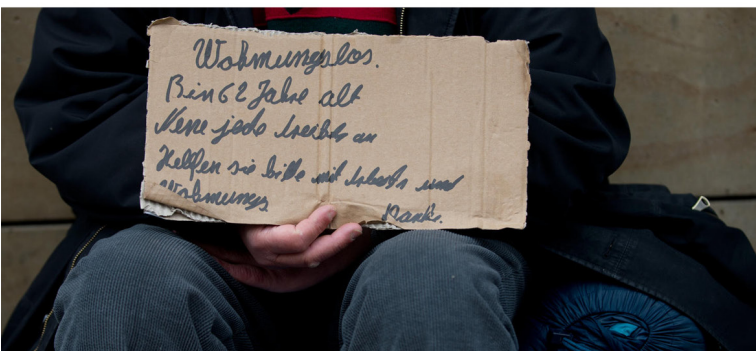 Wohmungslos.
Bin 62 Jahre alt
Neme jede Arbeit an
Helfen sie bitte mit Arbeit und
Wohmungs Dank.